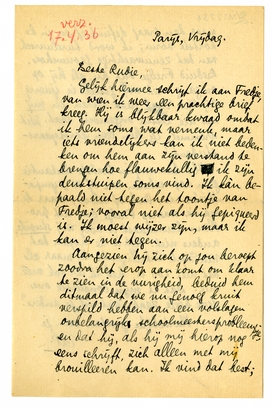 verz.
17.4.36
Parijs, Vrijdag.
Beste Rudie,
Gelijk hiermee schrijf ik aan Fredje,
van wien ik weer een prachtige brief
kreeg. Hij is blijkbaar kwaad omdat
ik hem soms wat verneuk, maar
iets vriendelijkers kan ik niet beden-
ken om hem aan zijn verstand te
brengen hoe flauwekullig ik zijn
denkstuipen soms vind. Ik kan be-
paald niet tegen het toontje van
Fredje; vooral niet als hij gepiqueerd
is. Ik moest wijzer zijn, maar ik
kan er niet tegen.
Aangezien hij zich op jou beroept
zoodra het erop aan komt om klaar
te zien in de nurigheid, beduid hem
ditmaal dat we nu genoeg kruit
verspild hebben aan een volslagen
onbelangrijk schoolmeestersprobleem:
en dat hij, als hij mij hierop nog
eens schrijft, zich alleen met mij
brouilleeren kan. Ik vind dat best;